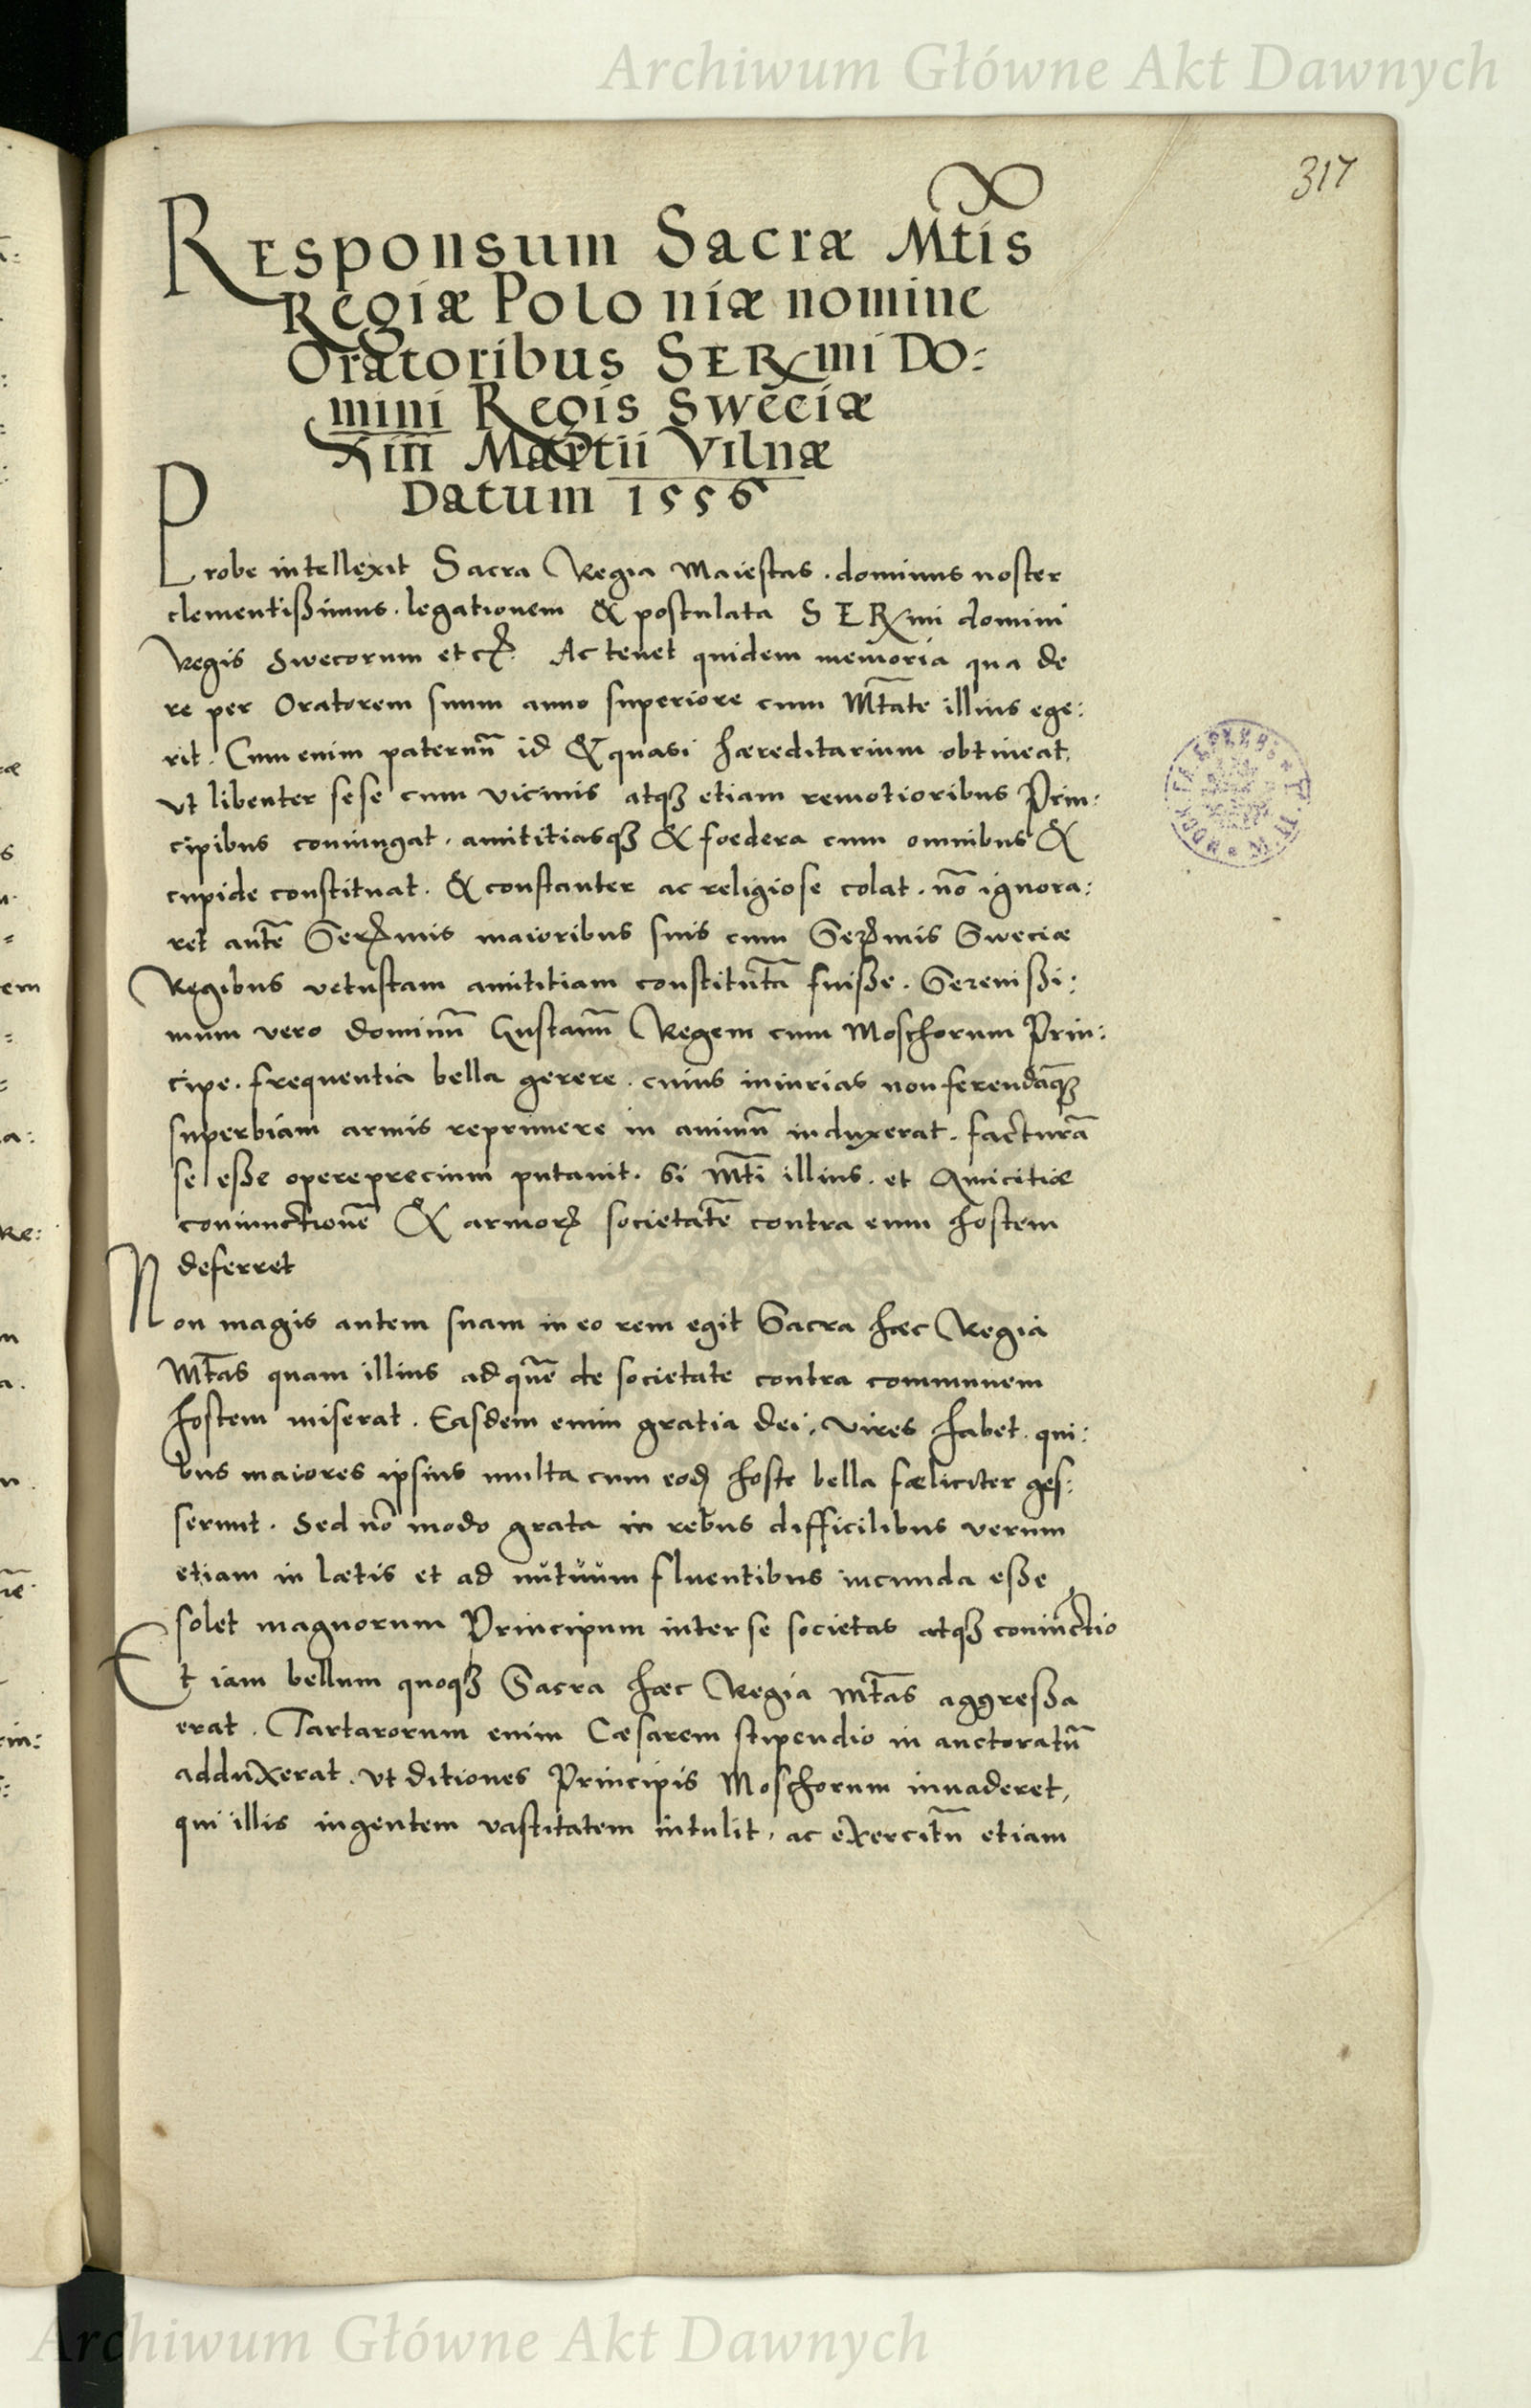 Archiwum Główne Akt Dawnych
317
Responsum Sacræ Mtis
Regiæ Poloniæ nomine
Oratoribus SERmi DO:
mini Regis Sweciæ
XIII Martii Vilnæ
Datum 1556
Probe intellexit Sacra Regia Maiestas . dominus noster
clementißimus . legationem & postulata SERmi domini
Regis Swecorum etc. Ac tenet quidem memoria qua de
re per Oratorem suum anno superiore cum Mtate illius ege:
rit . Cum enim paternū id & quasi hæreditarium obtineat,
ut libenter sese cum vicinis atqꝫ etiam remotioribus Prin:
cipibus coniungat , amititiasqꝫ & foedera cum omnibus &
cupide constituat . & constanter ac religiose colat . nō ignora:
ret autē Serꝫmis maioribus suis cum Serꝫmis Sweciæ
Regibus vetustam amititiam constitutā fuiße . Serenißi:
mum vero dominū Gustauū Regem cum Moschorum Prin:
cipe . frequentia bella gerere . cuius iniurias non ferendāqꝫ
superbiam armis reprimere in animū induxerat . facturā
se eße opereprecium putauit . si Mti illius . et Amicitiæ
coniunctionē & armorꝝ societatē contra eum hostem
deferret
Non magis autem suam in eo rem egit Sacra hæc Regia
Mtas quam illius ad quē de societate contra communem
hostem miserat . Easdem enim gratia dei , vires habet . qui:
bus maiores ipsius multa cum eodꝫ hoste bella fæliciter ges:
serunt . Sed nō modo grata in rebus difficilibus verum
etiam in lætis et ad nutuum fluentibus iucunda eße
solet magnorum Principum inter se societas atqꝫ coniūctio
Et iam bellum quoqꝫ Sacra hæc Regia Mtas aggreßa
erat . Tartarorum enim Cæsarem stipendio in auctoratū
adduxerat . ut ditiones Principis Moschorum inuaderet,
qui illis ingentem vastitatem intulit , ac exercitū etiam
Archiwum Główne Akt Dawnych